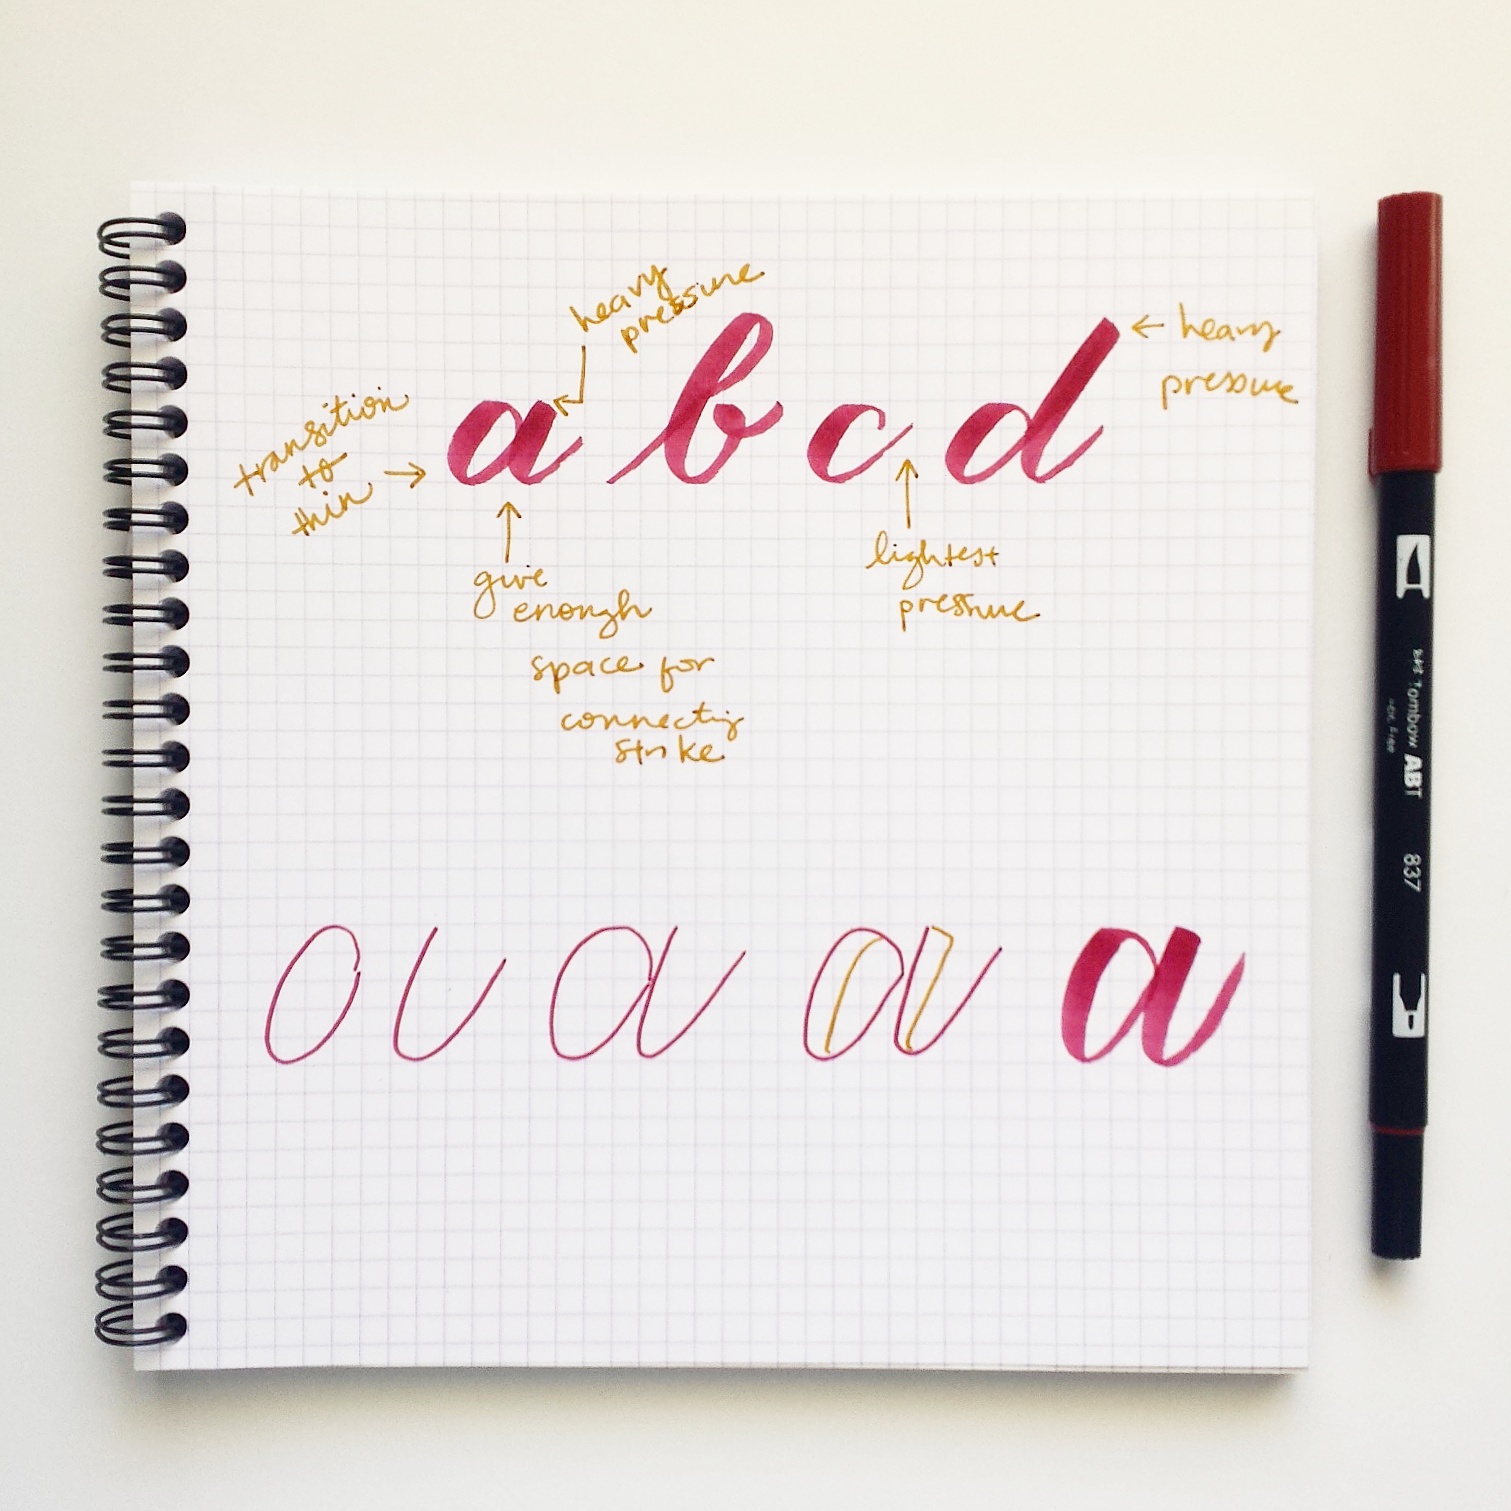 heavy
pressure
transition
to
thin
a b c d
heavy
pressure
give
enough
space for
connecting
stroke
lightest
pressure
a a a
Tombow ABT
837